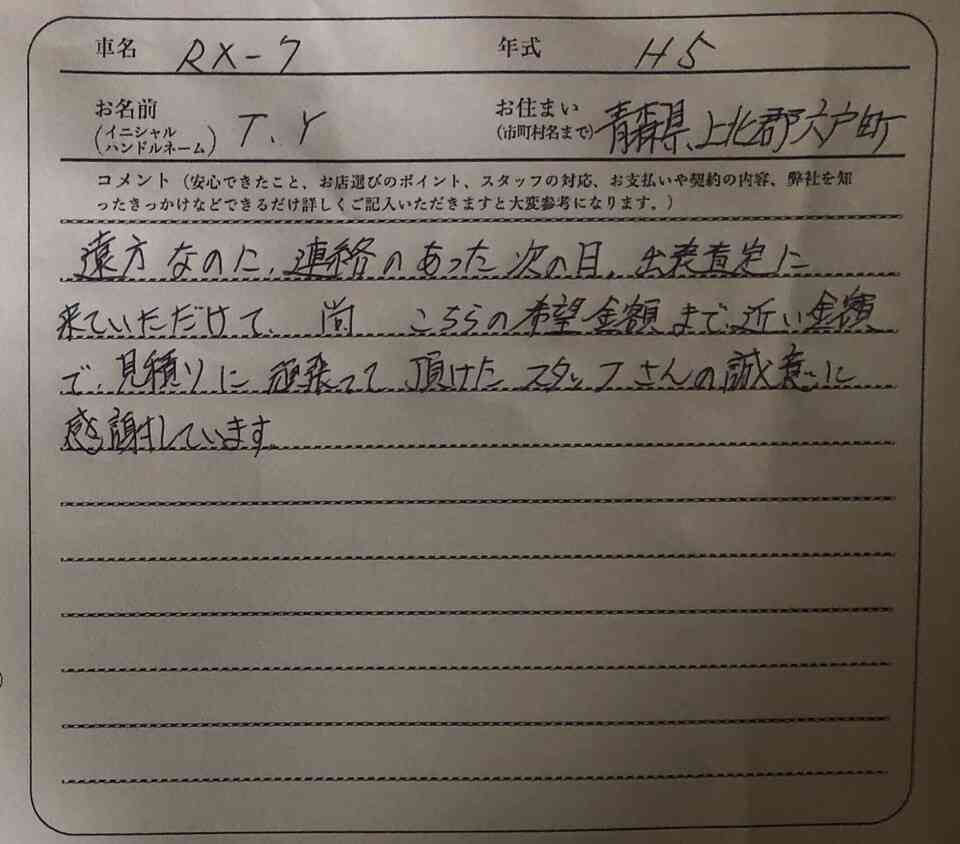 車名 RX-7 年式 H5
お名前 (イニシャル ハンドルネーム) T.Y お住まい (市町村名まで) 青森県、上北郡六戸町
コメント（安心できたこと、お店選びのポイント、スタッフの対応、お支払いや契約の内容、弊社を知
ったきっかけなどできるだけ詳しくご記入いただきますと大変参考になります。）
遠方なのに、連絡のあった次の日、出張査定に
来ていただけて、尚 こちらの希望金額まで、近い金額
で、見積りに 頑張って 頂けた スタッフさんの誠意に
感謝しています